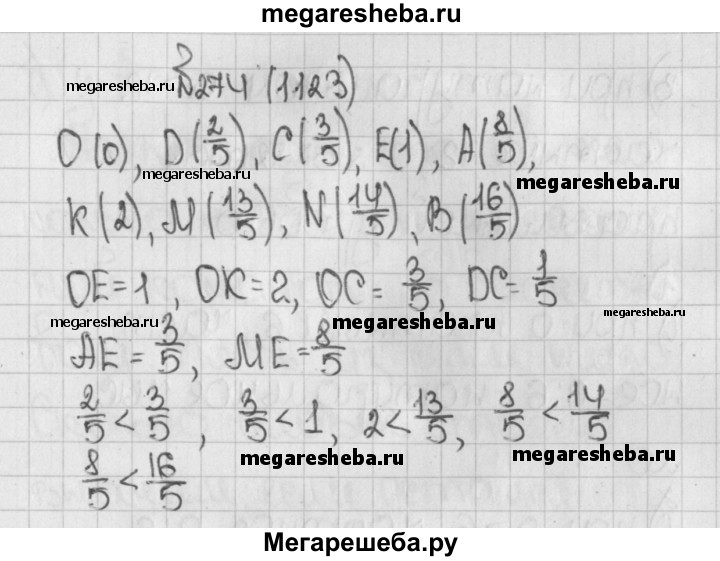 megaresheba.ru
№274 (1123)
megaresheba.ru
O(0), D(2/5), C(3/5), E(1), A(8/5),
megaresheba.ru
megaresheba.ru
K(2), M(13/5), N(14/5), B(16/5)
OE=1, OK=2, OC=3/5, DC=1/5
megaresheba.ru
megaresheba.ru
megaresheba.ru
AE=3/5, ME=8/5
2/5<3/5, 3/5<1, 2<13/5, 8/5<14/5
megaresheba.ru
megaresheba.ru
8/5<16/5
Мегарешеба.ру